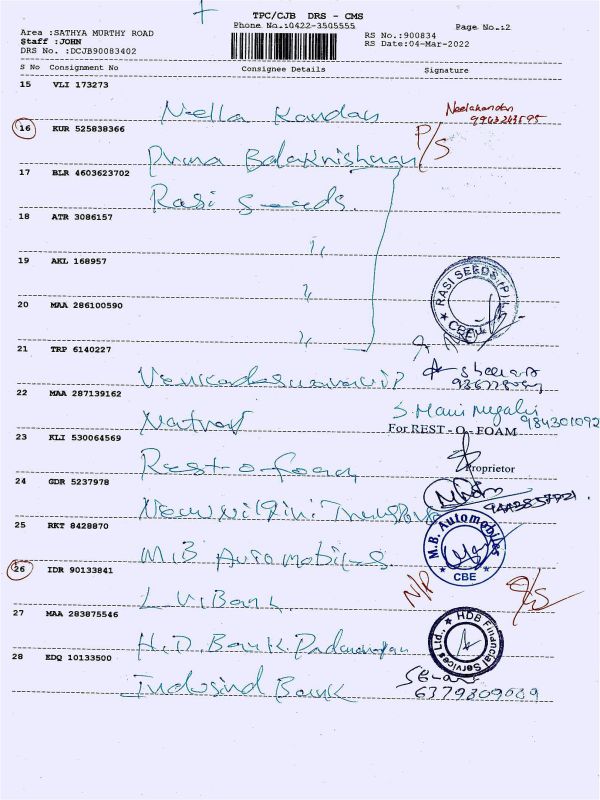 TPC/CJB DRS - CMS
Phone No.:0422-3505555
Page No.:2
Area :SATHYA MURTHY ROAD
Staff :JOHN
DRS No. :DCJB90083402
RS No.:900834
RS Date:04-Mar-2022
S No Consignment No Consignee Details Signature
15 VLI 173273
Nella Kandan
Neelakandan
16 KUR 525838366
P/S
Purna Balakrishnan
17 BLR 4603623702
Rasi Seeds.
18 ATR 3086157
〃
19 AKL 168957
RASI SEEDS (P) L
CBE
〃
20 MAA 286100590
〃
21 TRP 6140227
22 MAA 287139162
S. Mani
984301092
Natraj
For REST - O - FOAM
23 KLI 530064569
Rest-o-foam
Proprietor
24 GDR 5237978
25 RKT 8428870
M.B. Automobiles
CBE
M.B Automobiles
26 IDR 90133841
N/P
L V Bank
27 MAA 283875546
HDB Financial Services Ltd.,
H.D. Bank.
28 EDQ 10133500
Indusind Bank
6379809069